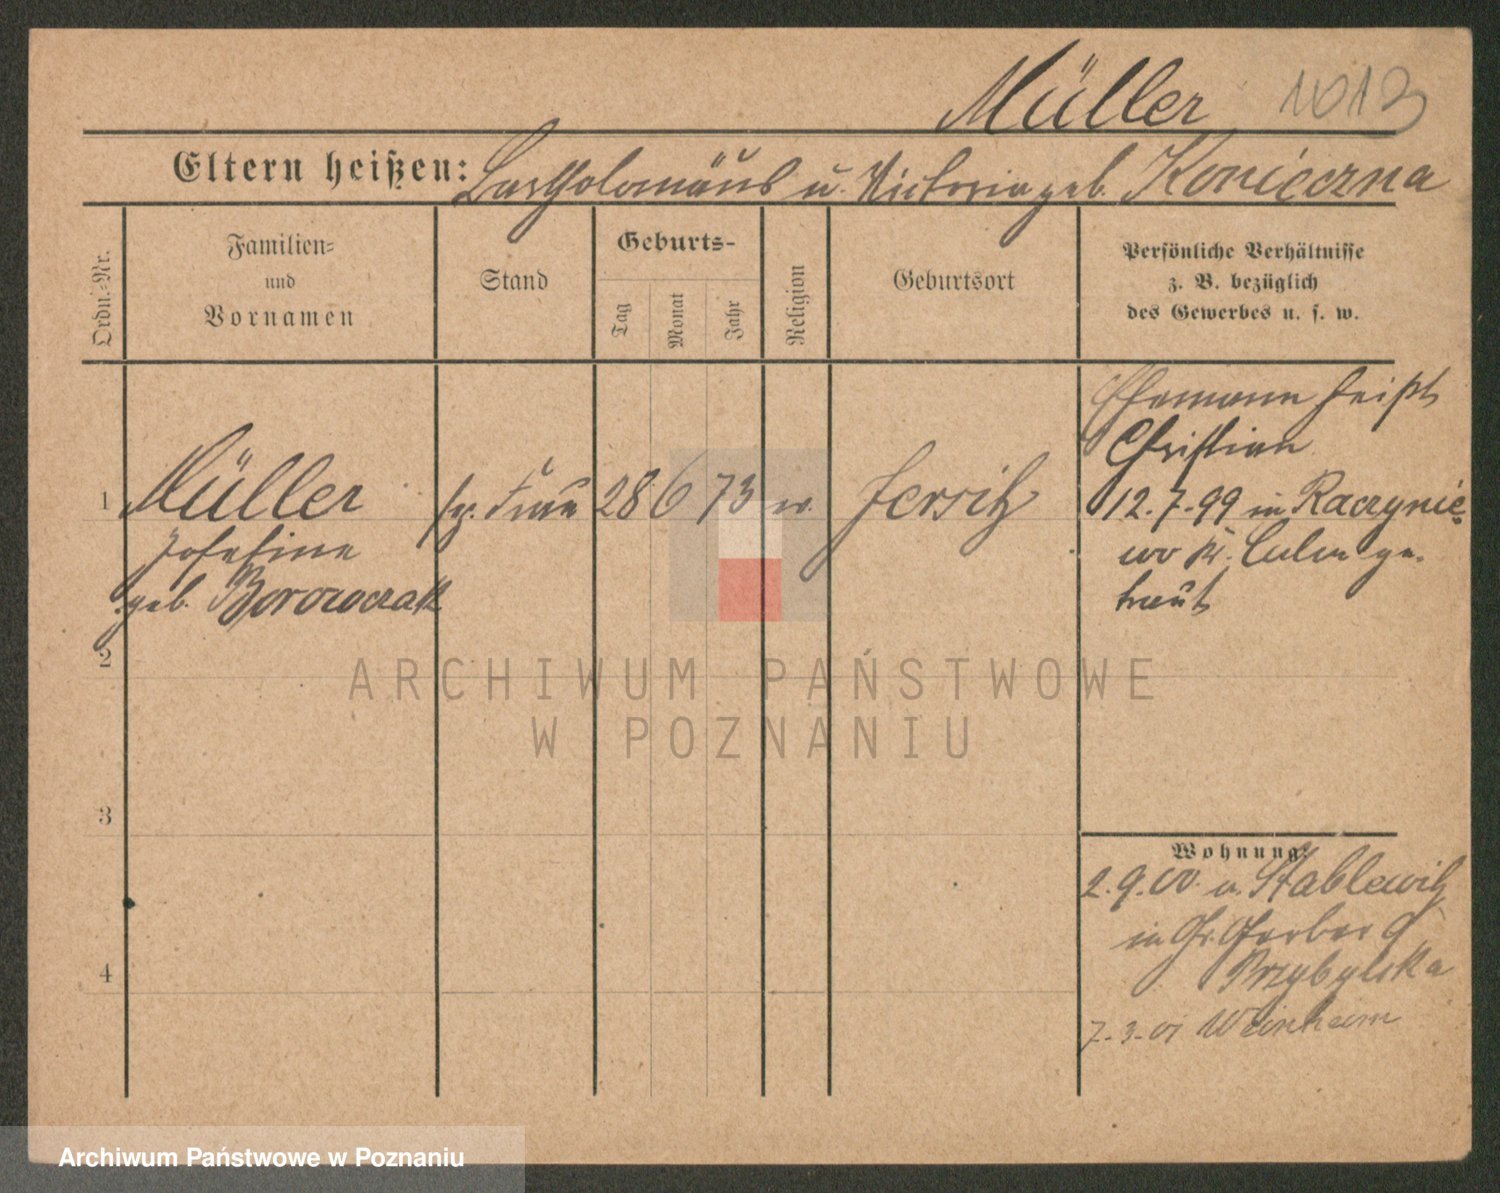 Müller 1013
Eltern heißen: Bartholomäus u. Victoria geb. Konieczna
Ordn.-Nr.
Familien-
und
Vornamen
Stand
Geburts-
Tag
Monat
Jahr
Religion
Geburtsort
Persönliche Verhältnisse
z. B. bezüglich
des Gewerbes u. s. w.
1 Müller Frau 28 6 73 Jersitz
Josefine
geb. Borowczak
Ehemann heißt
Christian
12.7.99 in Raczynie-
wo Kr. Culm ge-
traut
2
3
4
Wohnung:
2.9.00. v. Stablewitz
in Gr. Gerber 9
Przybylska
7.3.01 Weinheim
ARCHIWUM PAŃSTWOWE
W POZNANIU
Archiwum Państwowe w Poznaniu